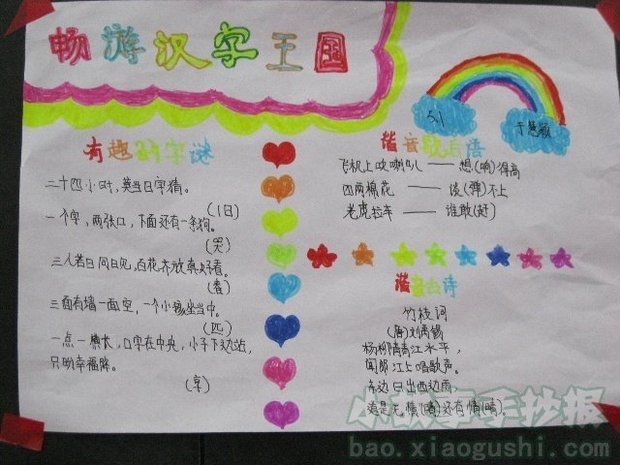 畅游汉字王国
有趣的字谜
二十四小时,莫当日字猜。
(旧)
一个字,两张口,下面还有一条狗。
(哭)
三人若日同日见,百花齐放真好看。
(春)
三面有墙一面空,一个小孩坐当中。
(匹)
一点一横长,口字在中央,小子下边站,
只盼幸福降。
(享)
5.1
于慧颖
谐音歇后语
飞机上吹喇叭——想(响)得高
四两棉花——谈(弹)不上
老虎拉车——谁敢(赶)
谐音古诗
竹枝词
(唐)刘禹锡
杨柳青青江水平,
闻郎江上唱歌声。
东边日出西边雨
道是无情(晴)还有情(晴)
小故事手抄报
bao.xiaogushi.com